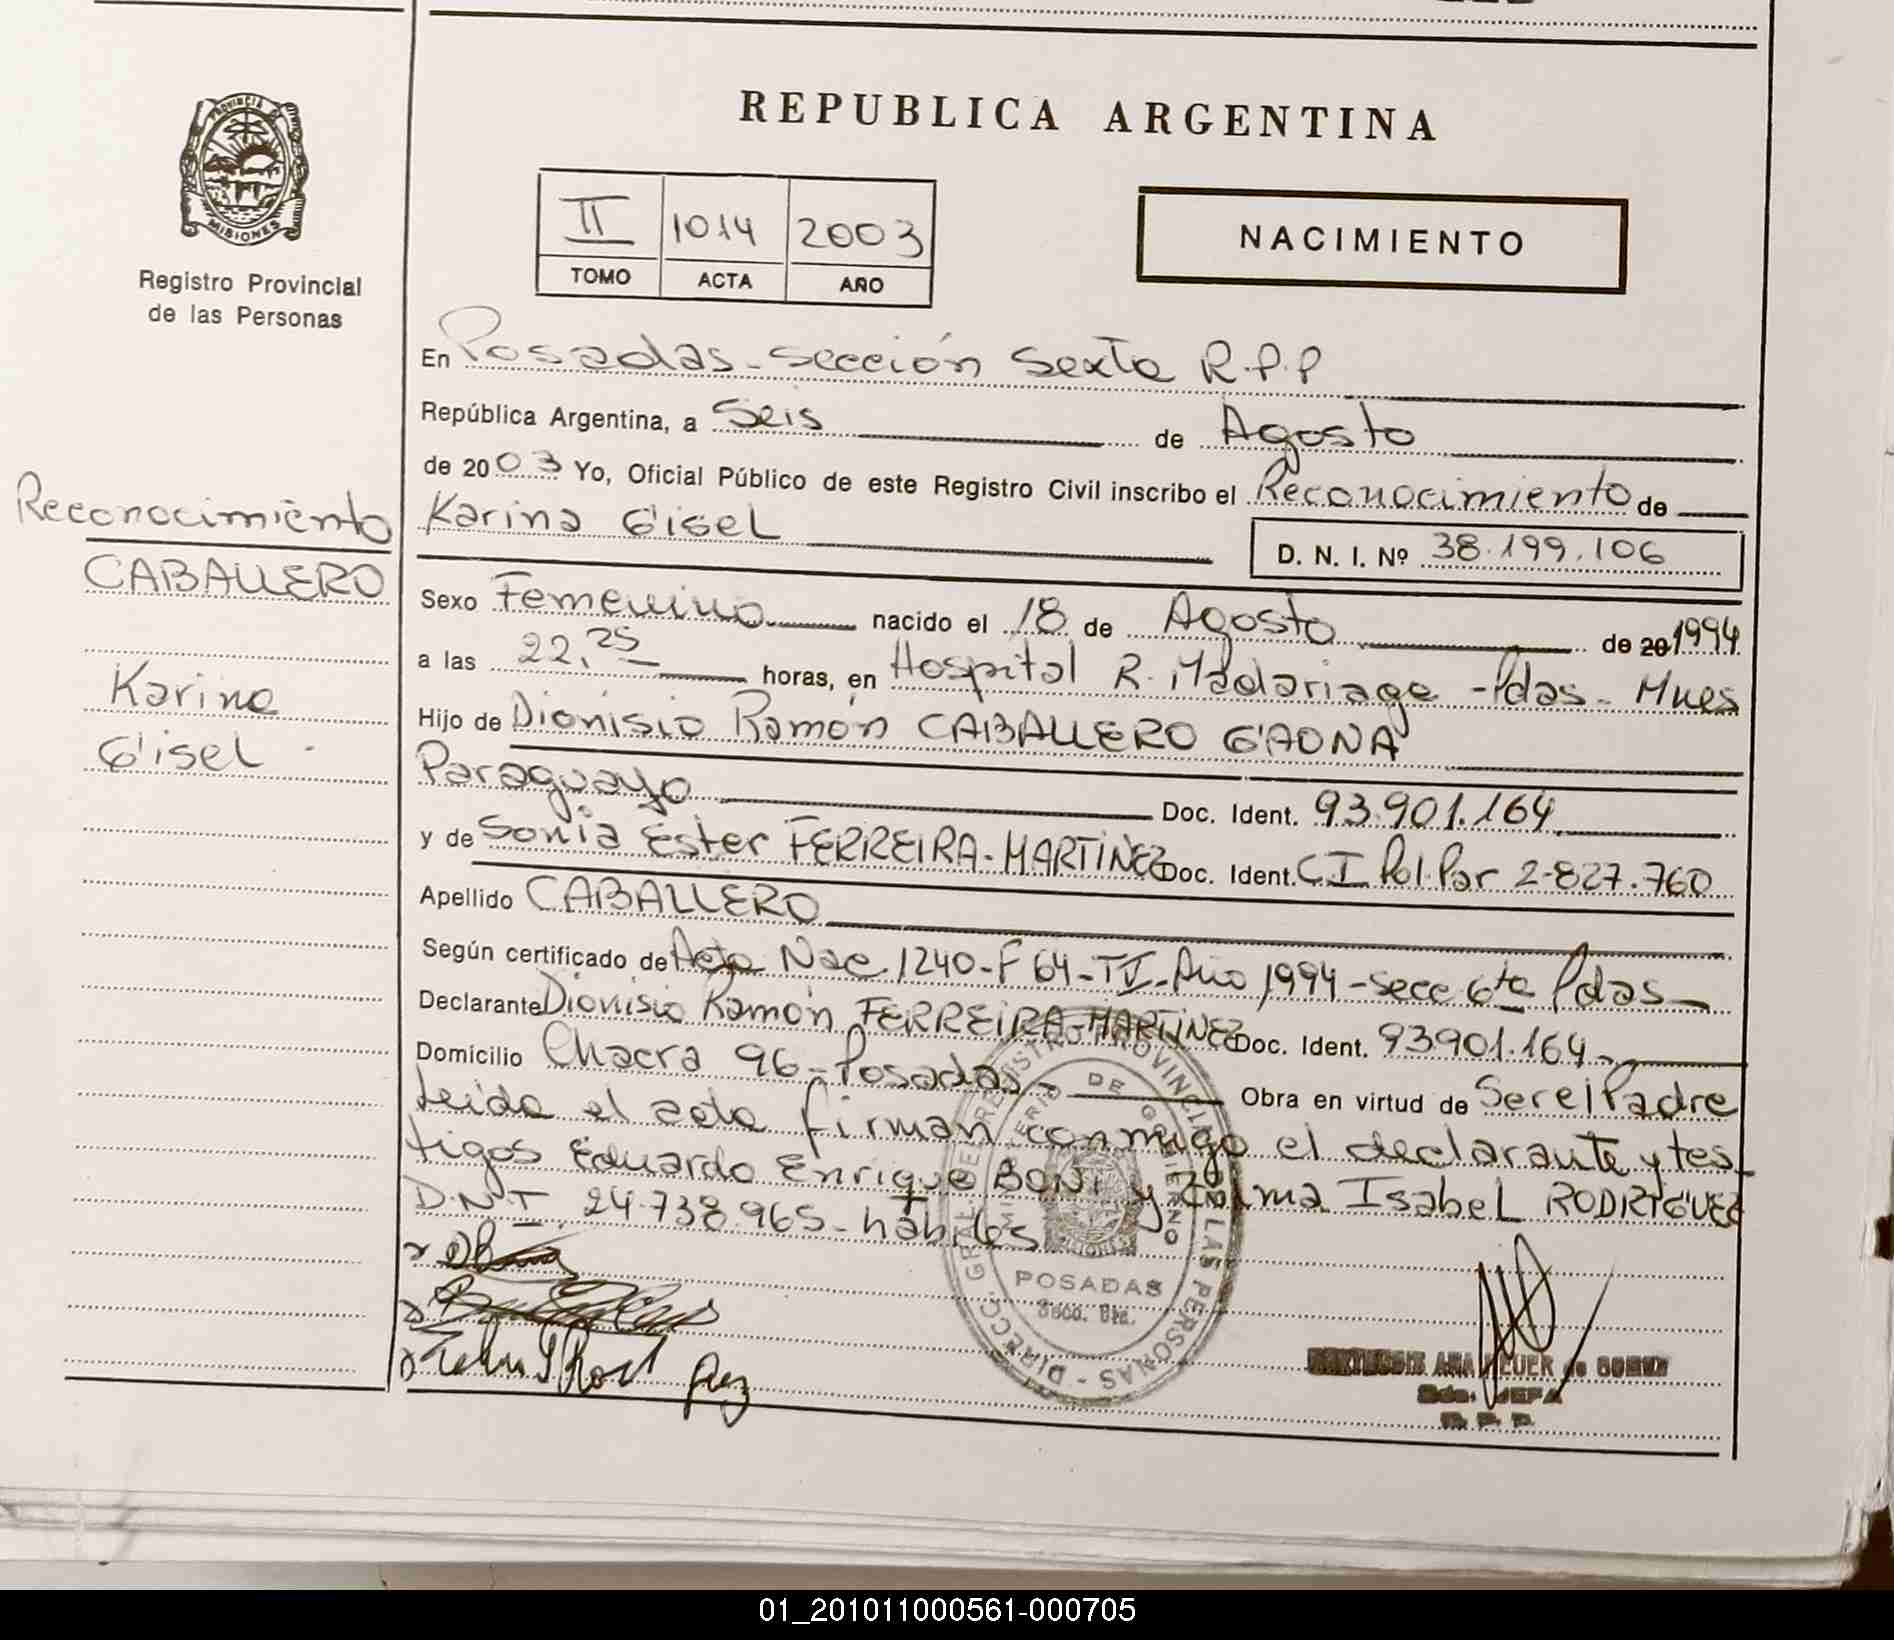 REPUBLICA ARGENTINA
PROVINCIA
MISIONES
Registro Provincial
de las Personas
II 1014 2003
TOMO ACTA AÑO
NACIMIENTO
En Posadas - sección Sexta R.P.P
República Argentina, a Seis de Agosto
de 2003 Yo, Oficial Público de este Registro Civil inscribo el Reconocimiento de
Karina Gisel
D. N. I. Nº 38.199.106
Reconocimiento
CABALLERO
Karina
Gisel
Sexo Femenino nacido el 18 de Agosto de 20 1994
a las 22,25 horas, en Hospital R. Madariaga - Pdas - Mnes
Hijo de Dionisio Ramón CABALLERO GAONA
Paraguayo Doc. Ident. 93.901.164
y de Sonia Ester FERREIRA-MARTÍNEZ Doc. Ident. C.I Pol. Par 2-827.760
Apellido CABALLERO
Según certificado de Acta Nac. 1240-F 64-TI-Año 1994-Secc 6ta Pdas
Declarante Dionisio Ramón FERREIRA-MARTINEZ Doc. Ident. 93901.164
Domicilio Chacra 96 - Posadas Obra en virtud de Ser el Padre
Leida el acta firman conmigo el declarante y tes-
tigos Eduardo Enrique BONI y Zulma Isabel RODRIGUEZ
D.N.I. 24.738.965 - hábiles
DIRECC. GRAL DE REGISTRO PROVINCIAL DE LAS PERSONAS
MINISTERIO DE GOBIERNO
MISIONES
POSADAS
Secc. 6ta.
ANA
JEFA
R. P. P.
01_201011000561-000705